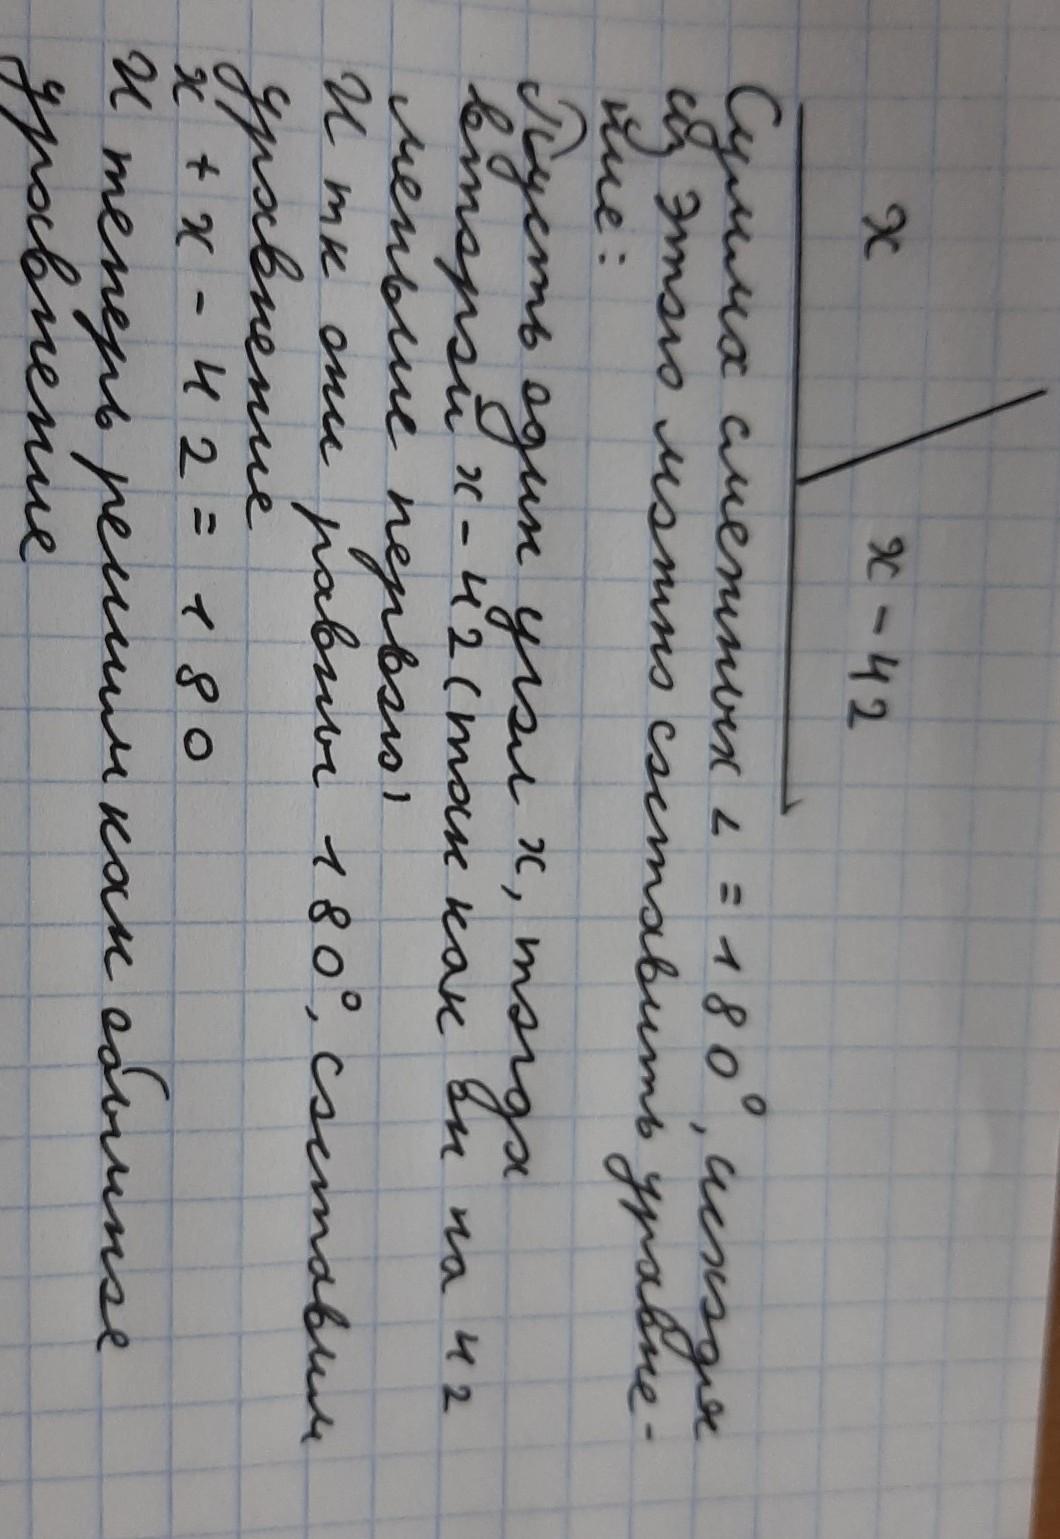 x
x - 42
Сумма смежных ∠ = 180°, исходя
из этого можно составить уравне-
ние:
Пусть один угол x, тогда
второй x - 42 (так как он на 42
меньше первого)
И тк они равны 180°, составим
уравнение
x + x - 42 = 180
И теперь решим как обычное
уравнение